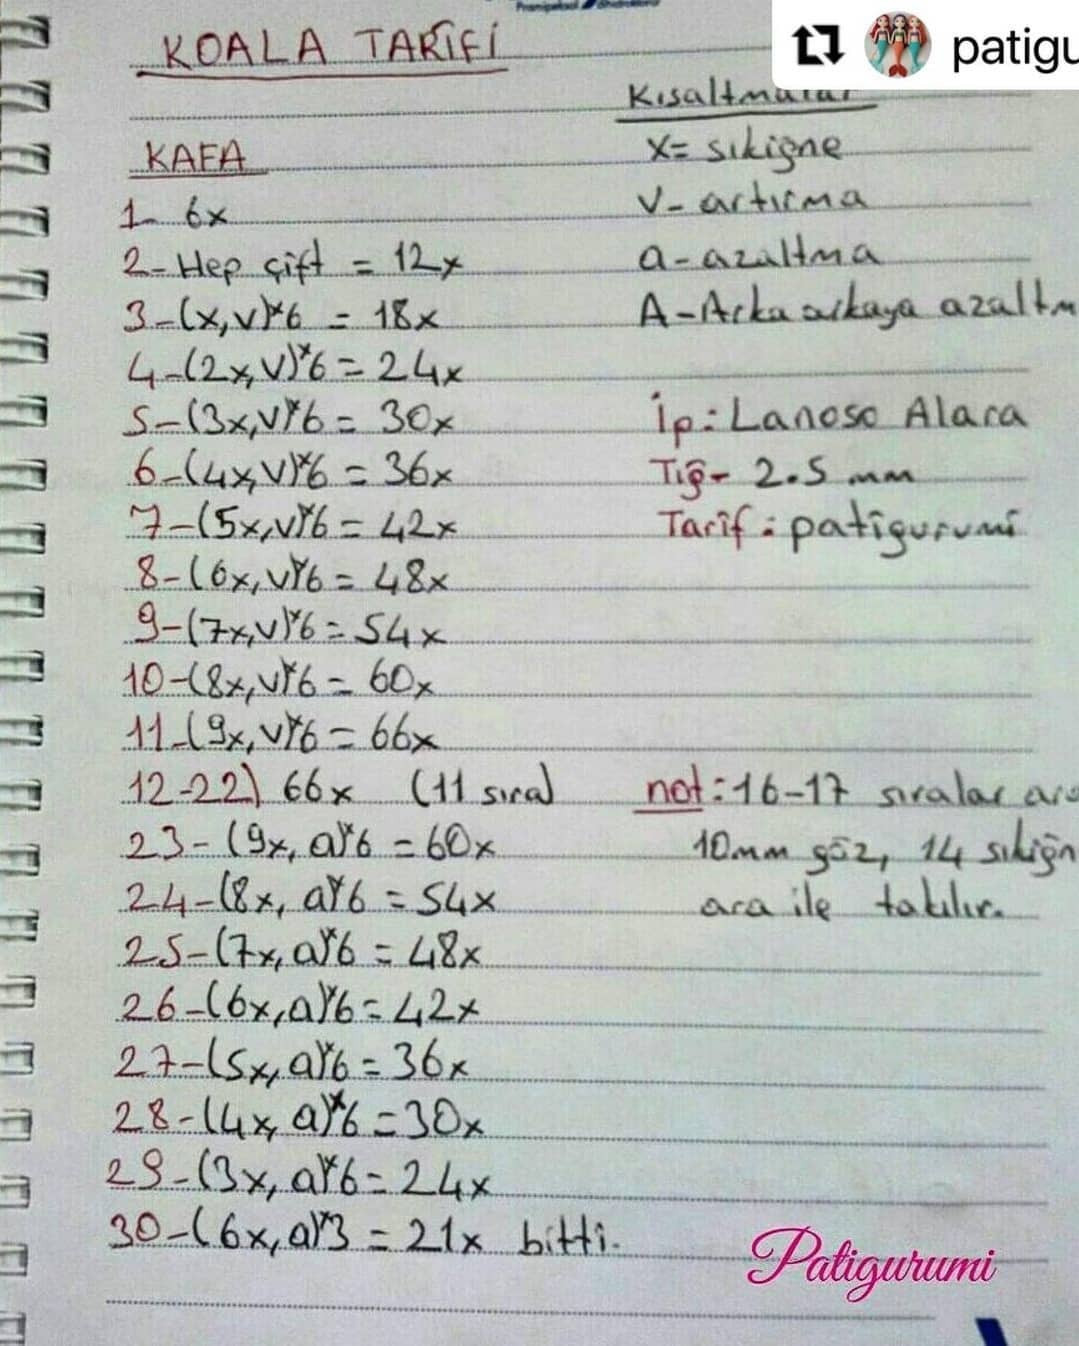 patigu
KOALA TARİFİ
Kısaltmalar
KAFA
x= sıkiğne
1- 6x
V- artırma
2- Hep çift = 12x
a- azaltma
3-(x,v)*6 = 18x
A-Arka arkaya azaltm
4-(2x,v)*6 = 24x
5-(3x,v)*6 = 30x
İp: Lanoso Alara
6-(4x,v)*6 = 36x
Tığ- 2.5 mm
7-(5x,v)*6 = 42x
Tarif: patigurumi
8-(6x,v)*6 = 48x
9-(7x,v)*6 = 54x
10-(8x,v)*6 = 60x
11-(9x,v)*6 = 66x
12-22) 66x (11 sıra)
not: 16-17 sıralar ara
23- (9x, a)*6 = 60x
10mm göz, 14 sıkiğn
24-(8x, a)*6 = 54x
ara ile takılır.
25-(7x, a)*6 = 48x
26-(6x,a)*6 = 42x
27-(5x, a)*6 = 36x
28-(4x, a)*6 = 30x
29-(3x, a)*6 = 24x
30-(6x, a)*3 = 21x bitti.
Patigurumi